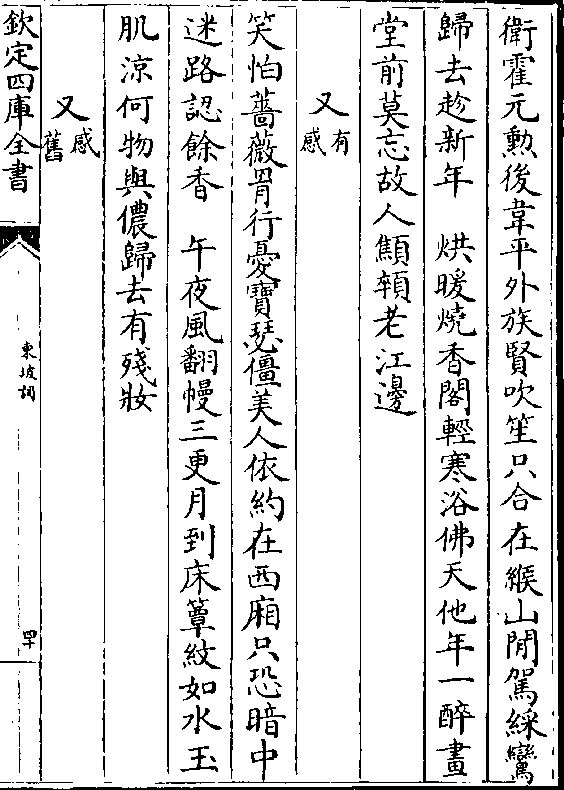 衛霍元勲後韋平外族賢吹笙只合在緱山閒駕綵鸞
歸去趁新年　烘暖燒香閣輕寒浴佛天他年一醉畫
堂前莫忘故人顦顇老江邊
又有感
笑怕薔薇罥行憂寶瑟僵美人依約在西廂只恐暗中
迷路認餘香　午夜風翻幔三更月到床簟紋如水玉
肌涼何物與儂歸去有殘妝
又感舊
欽定四庫全書
東坡詞
四十